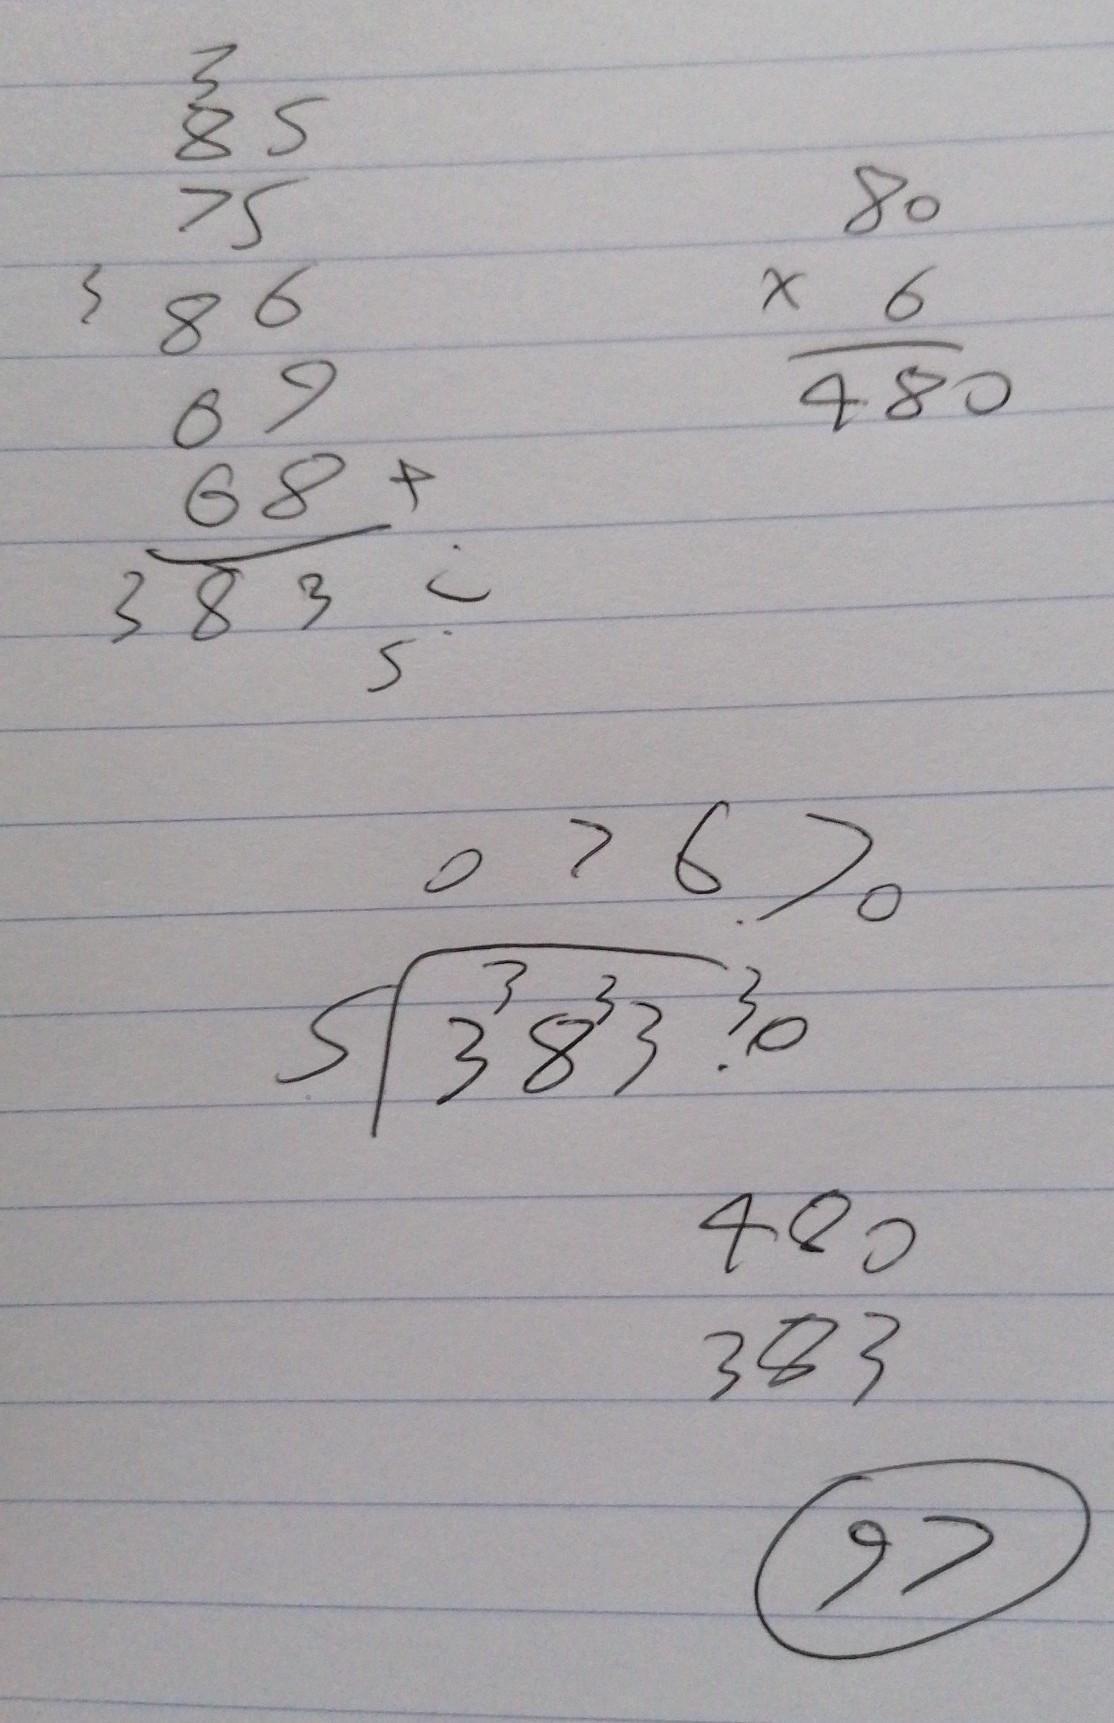 3
85
75
3 86
69
68 +
383 ÷
5
80
x 6
480
076.70
3 3 3
5 383.0
480
383
97